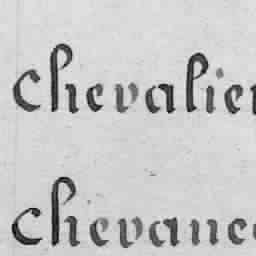 Chevalier
Chevance